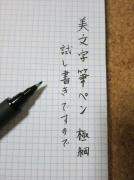 美文字筆ペン 極細
試し書きですので